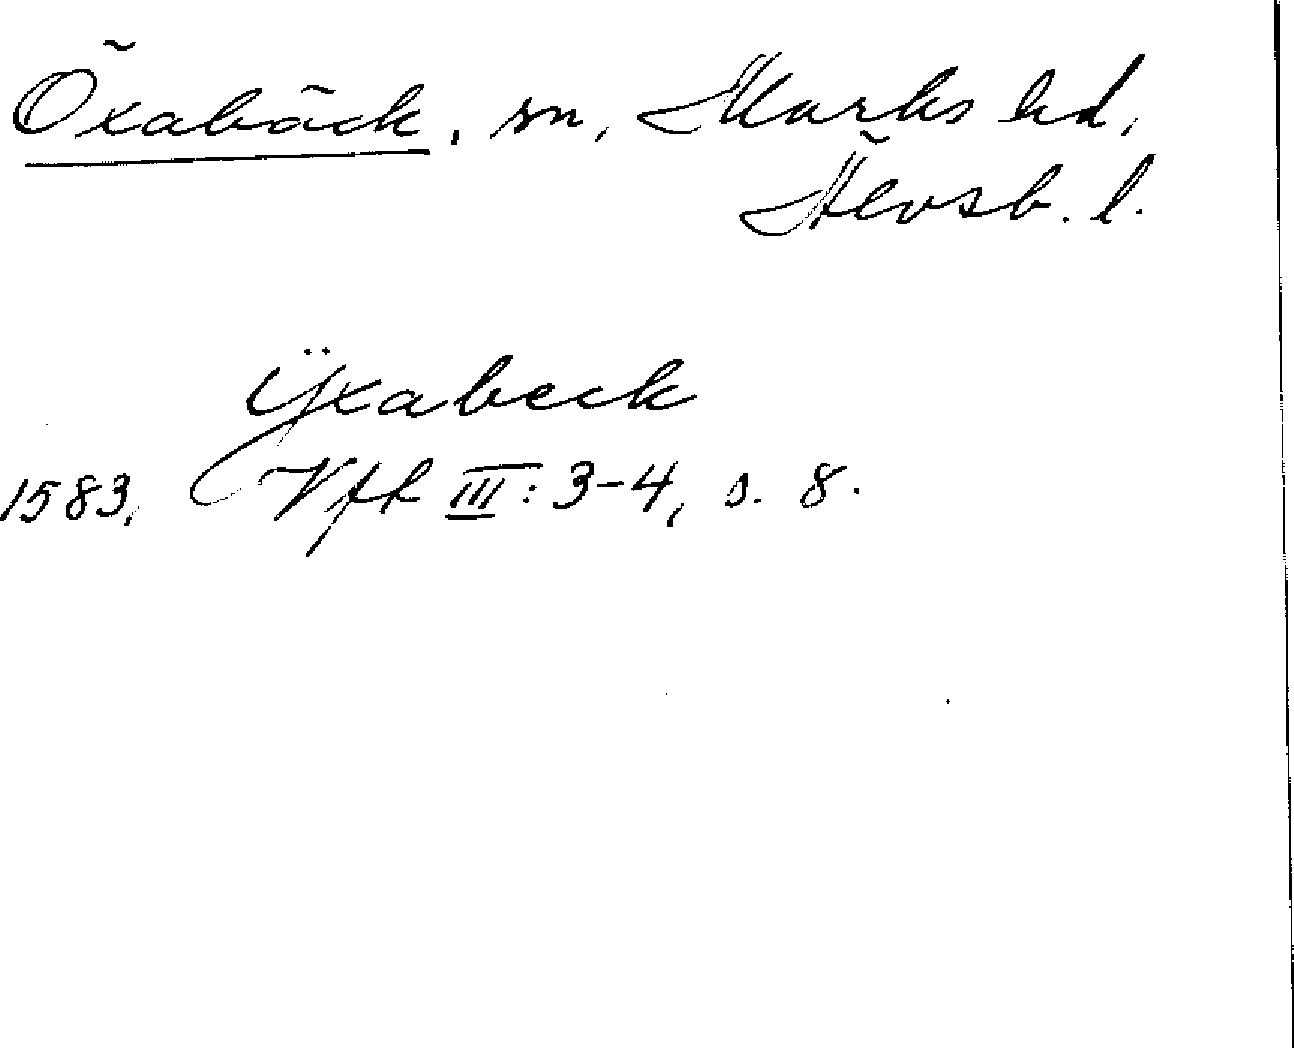 Öxabäck, sn, Marks hd,
Älvsb. l.
Ÿxabeck
1583, Vfk III: 3-4, s. 8.